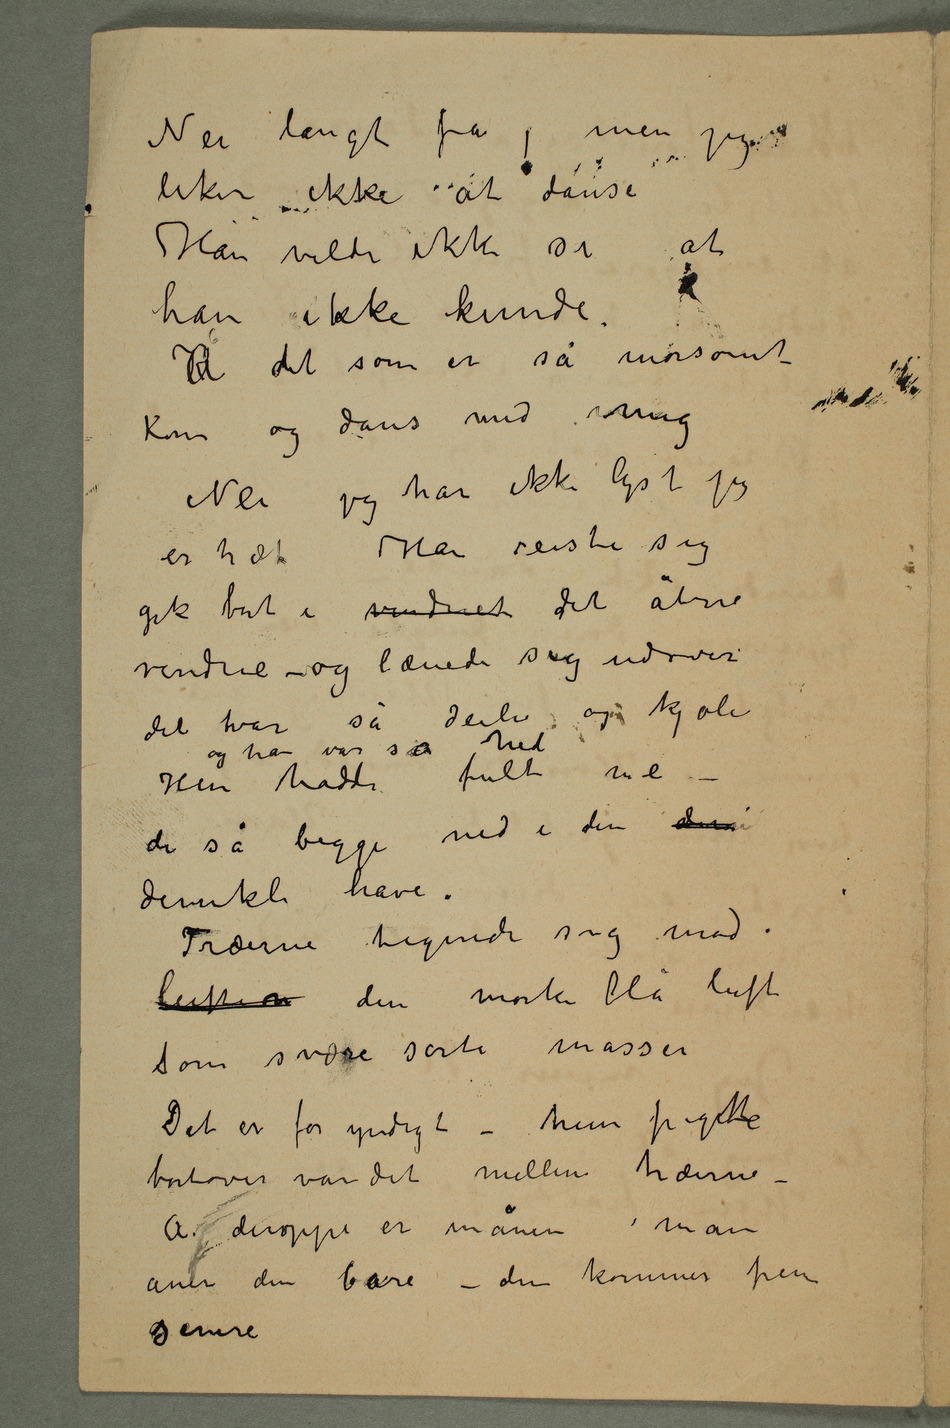 Nei langt fra, men jeg
liker ikke at danse
Han vilde ikke si at
han ikke kunde.
Å det som er så morsomt –
Kom og dans med mig
Nei jeg har ikke lyst jeg
er træt Han reiste sig
gik bort i vinduet det åbne
vindue – og lænede sig udover
det var så deili og kjøle
og han var så hed
Hun hadde fult me –
de så begge ned i den
dunkle have.
Træerne tegnede sig mod
luften den mørke blå luft
som svære sorte masser
Det er for yndigt – hun pegte
bortover vandet mellem træerne –
A deroppe er månen man
aner den bare – den kommer frem
senere